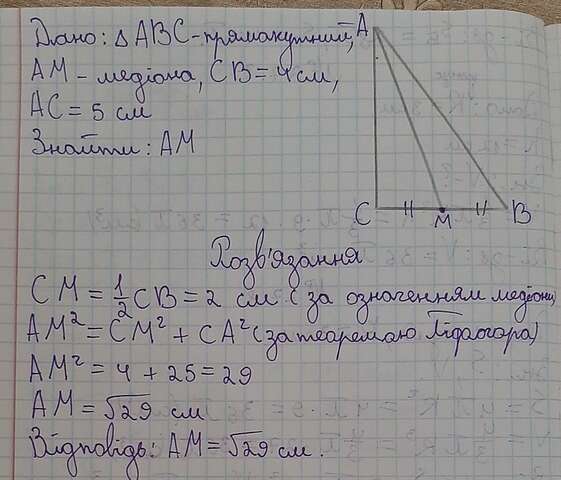 Дано: △ABC - прямокутний,
AM - медіана, CB = 4 см,
AC = 5 см
Знайти: AM
A
C M B
Розв'язання
CM = 1/2 CB = 2 см (за означенням медіани)
AM² = CM² + CA² (за теаремаю Піфагора)
AM² = 4 + 25 = 29
AM = √29 см
Відповідь: AM = √29 см.